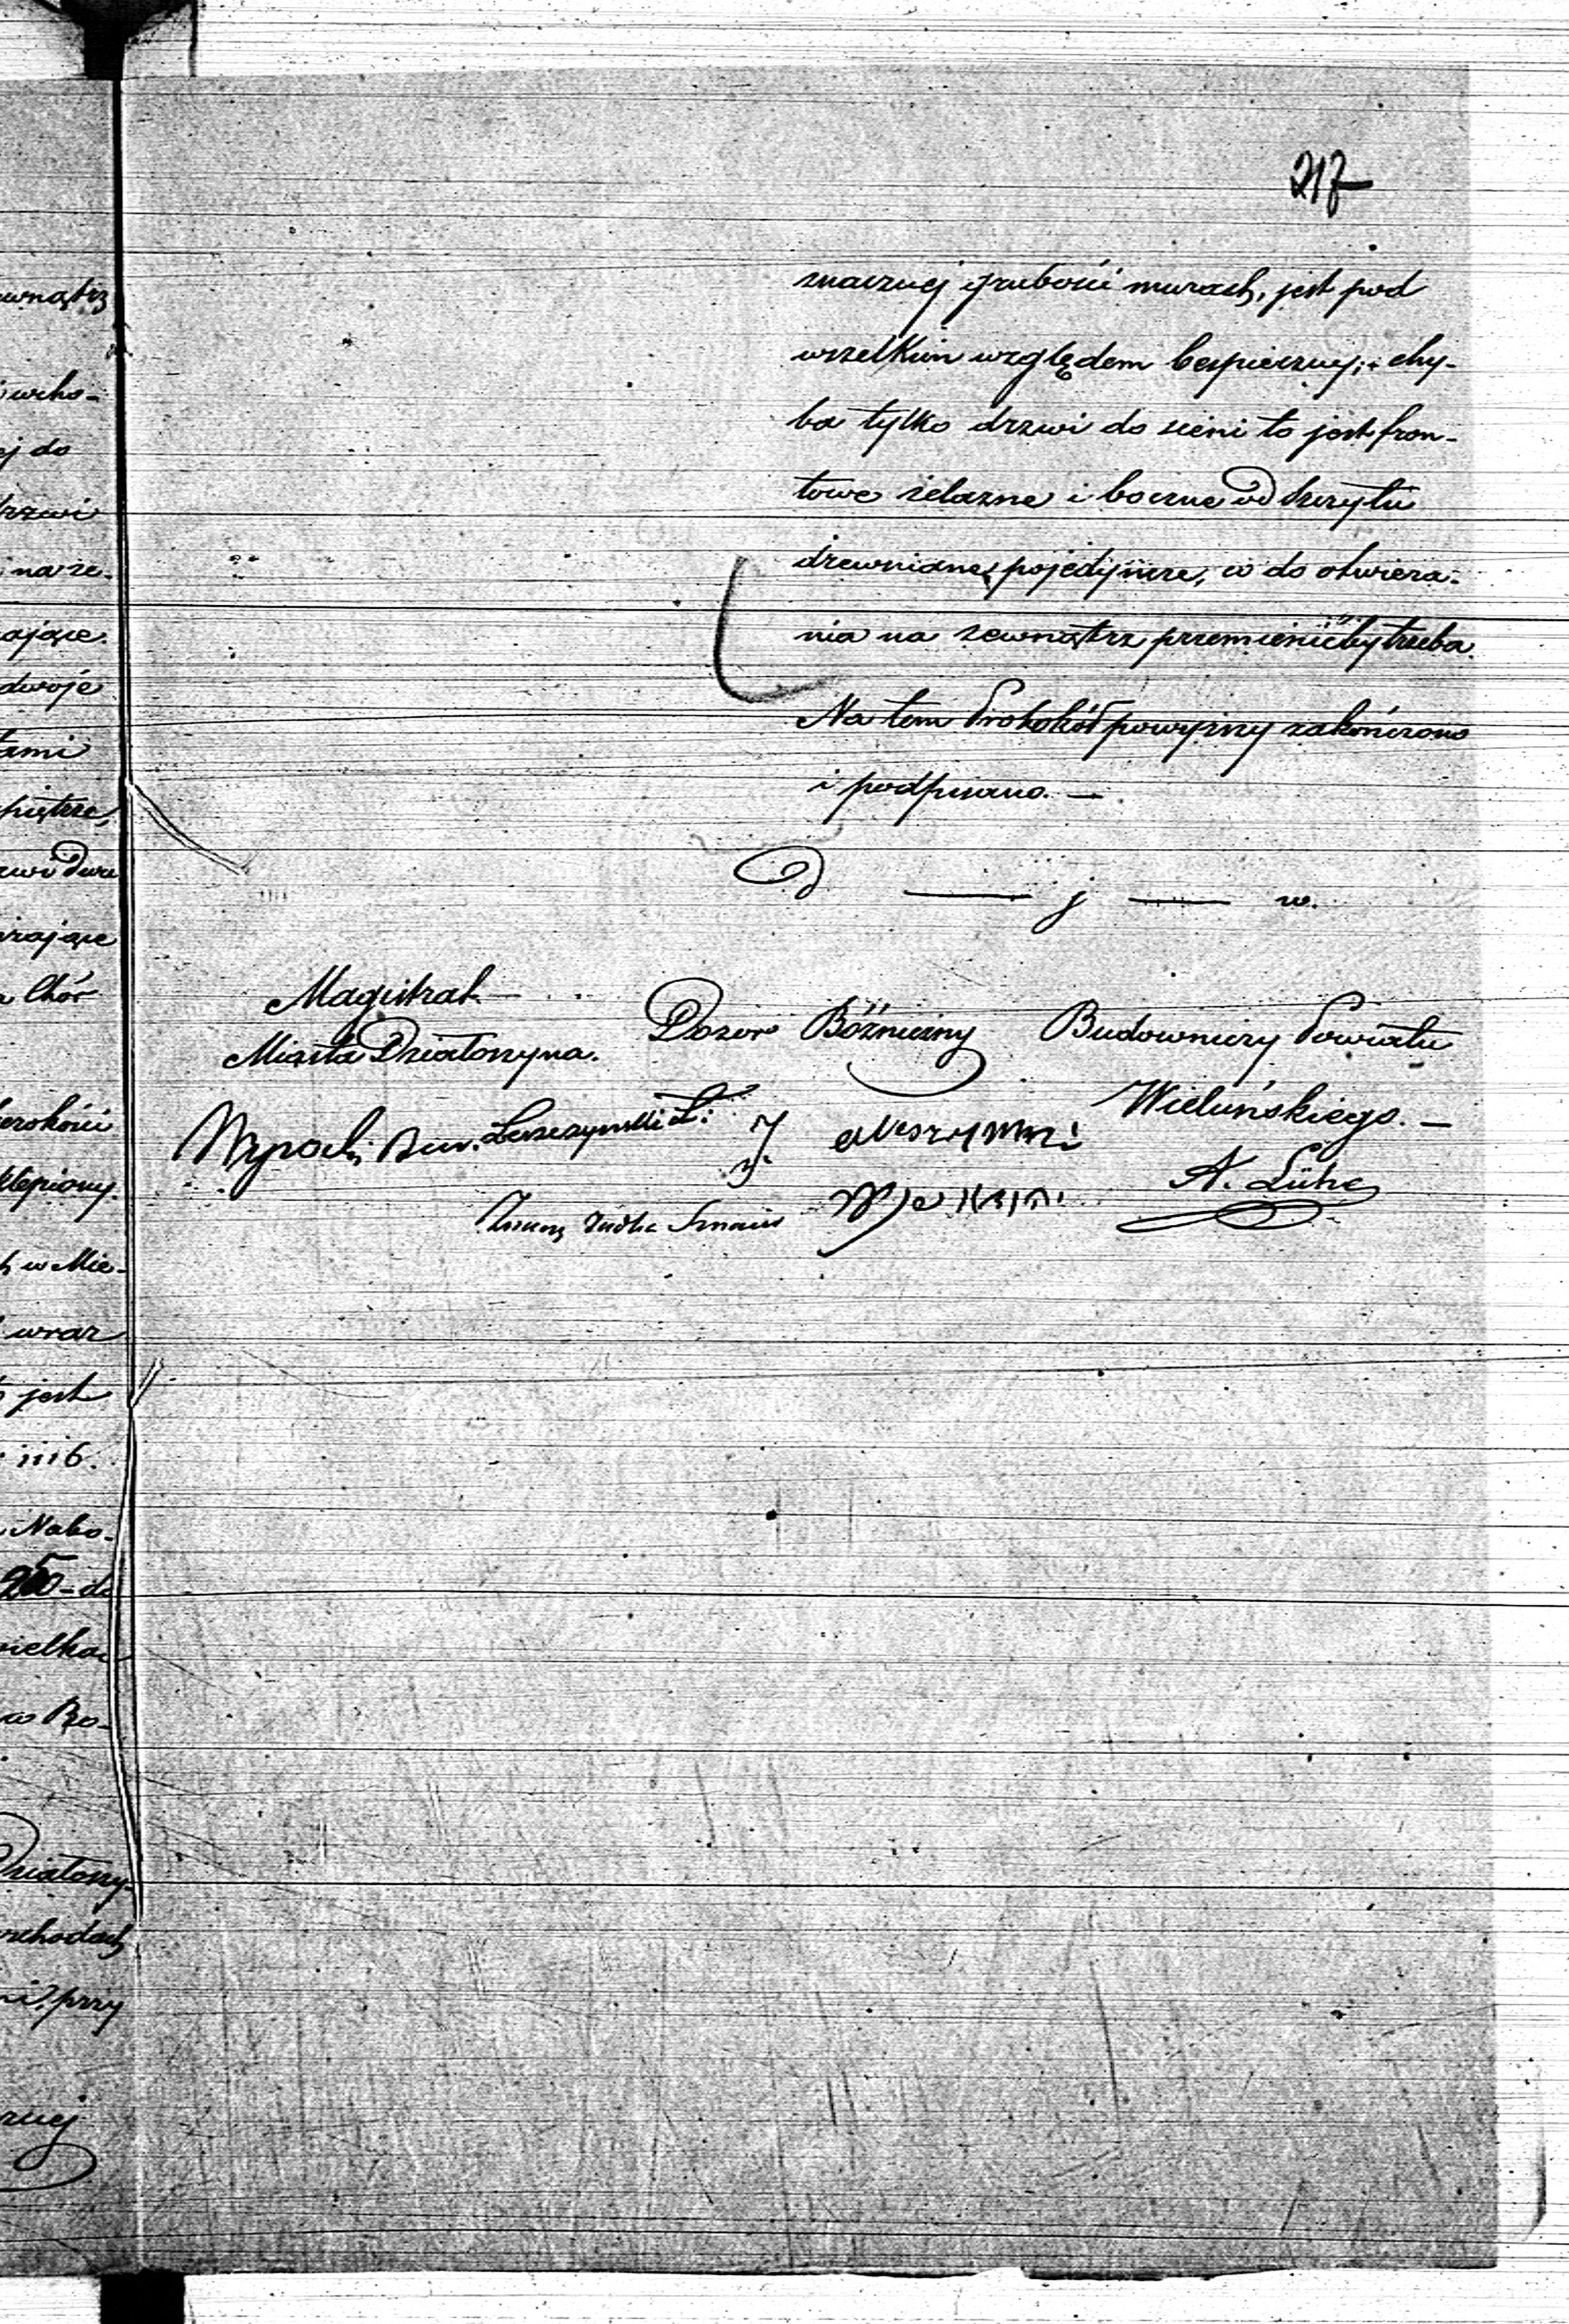 217
znacznej grubości murach, jest pod
wszelkim względem bespieczny; chy-
ba tylko drzwi do sieni to jest fron-
towe żelazne i boczne od szczytu
drewniane, pojedyncze, co do otwiera-
nia na zewnątrz przemienićby trzeba.
Na tem Protokół powyższy zakończono
i podpisano. —
D — j — w.
Magistrat
Miasta Działoszyna.
Dozór Bóżniczny
Budowniczy Powiatu
Wieluńskiego. —
A. Lühe
wnątrz
wcho-
ej do
drzwi
na ze-
ające
dwoje
tami
piętrze,
zwi dwu
erające
Chór
erokości
klepiony.
w Mie-
wraz
jest
1116.
Nabo-
250 - do
wielka
w Bo-
Działoszy-
schodach
ni, przy
cznej